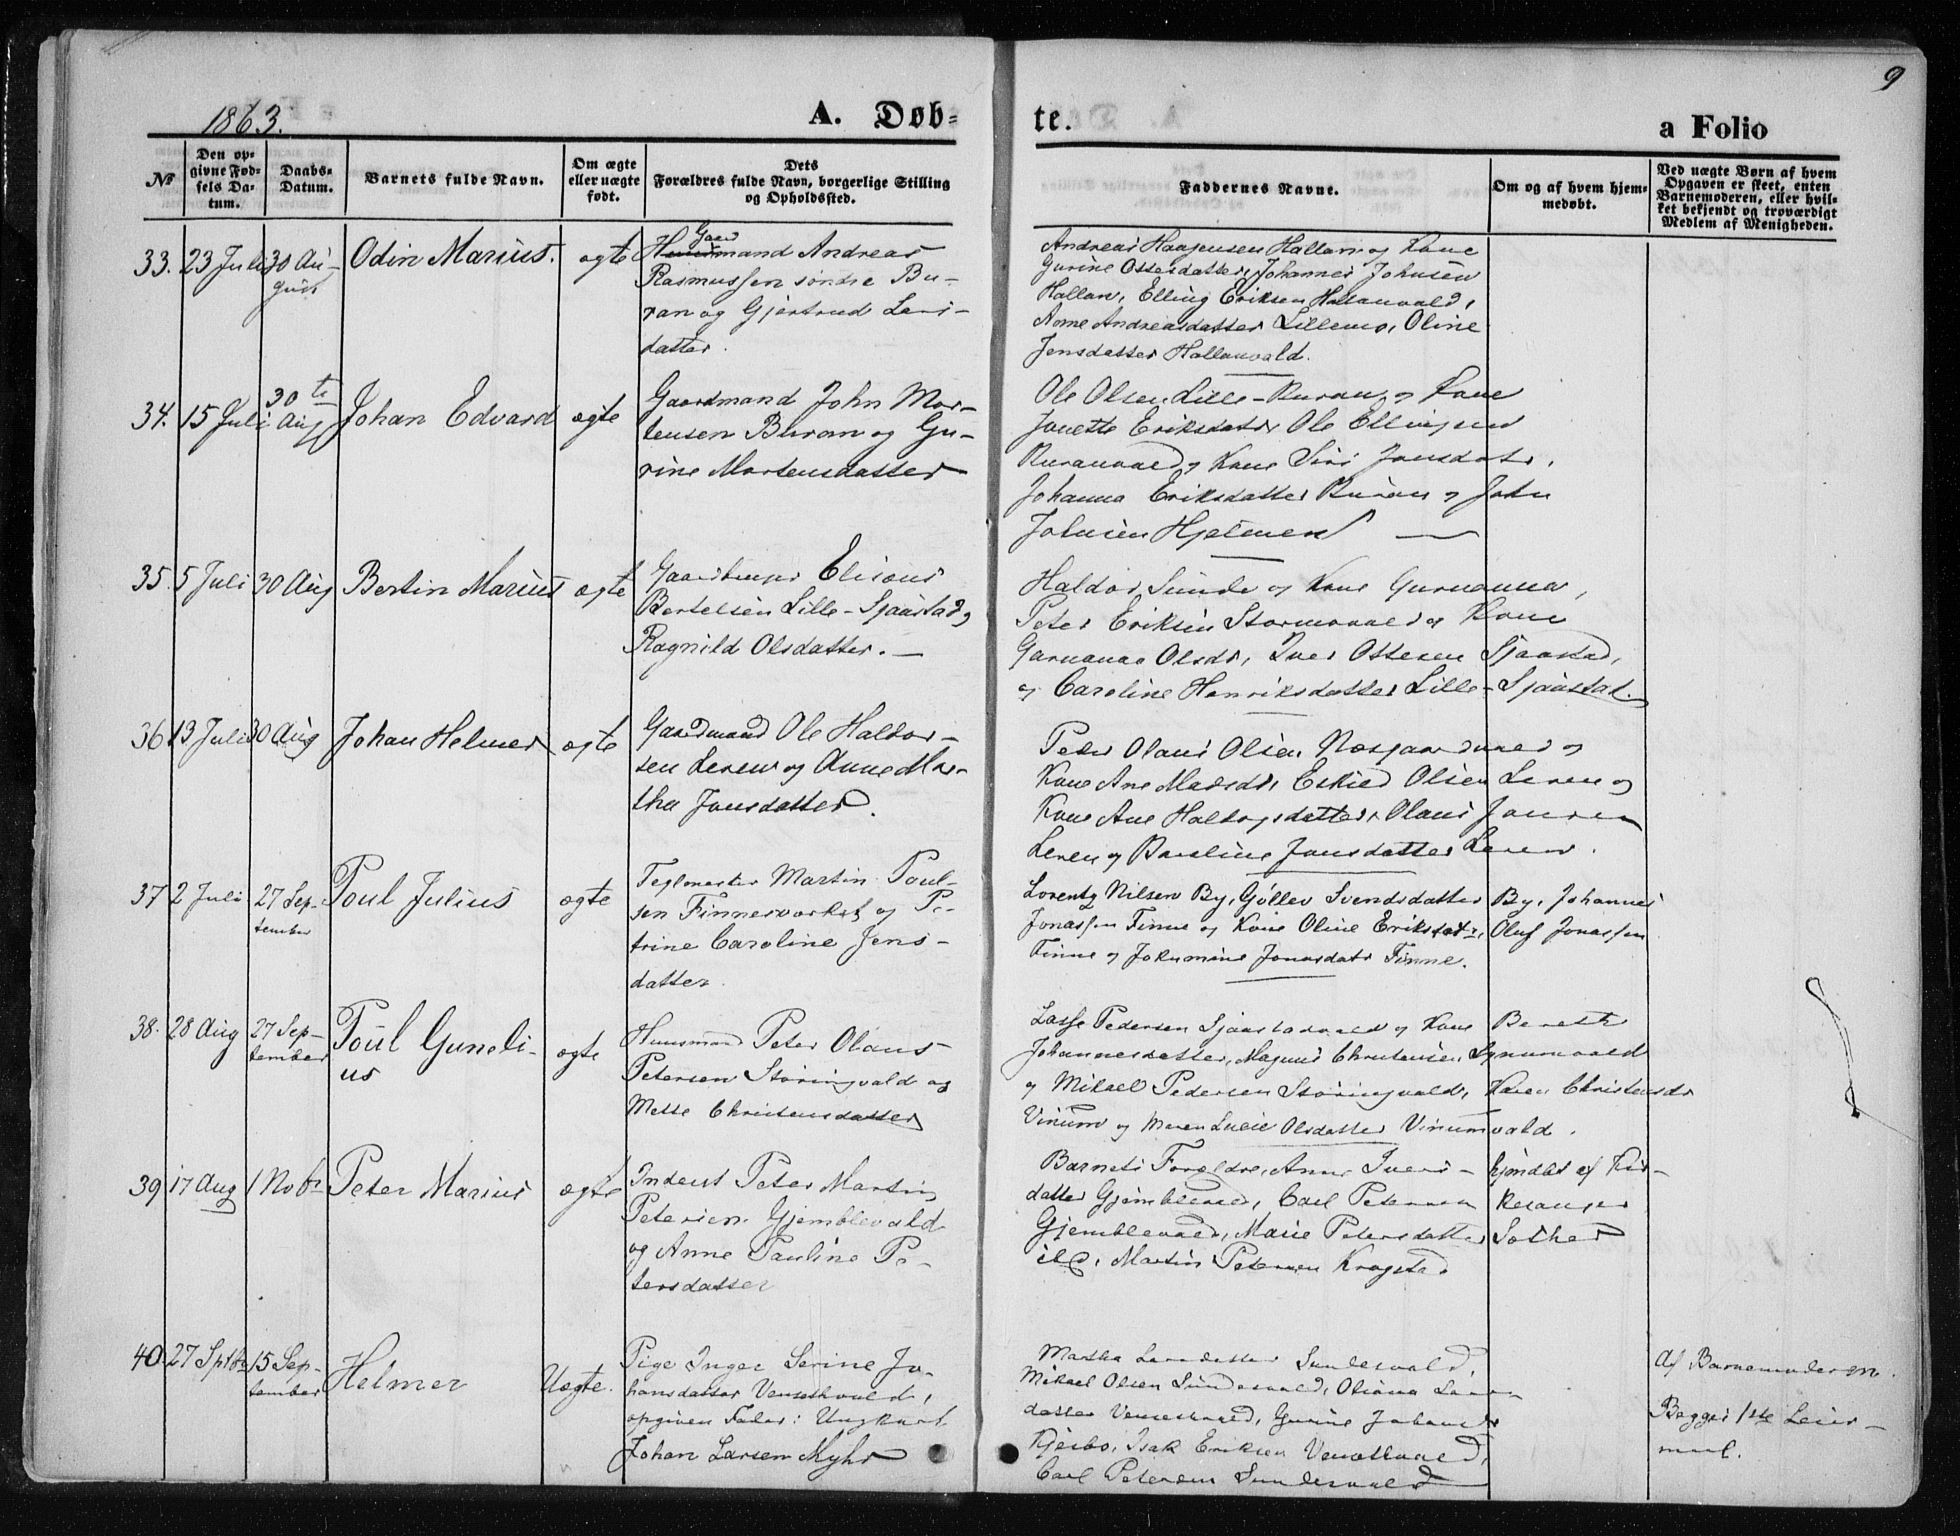 1863.
A. Døb=
te.
a Folio
9
No
Den op=
givne Fød=
sels Da=
tum.
Daabs=
Datum.
Barnets fulde Navn.
Om ægte
eller uægte
født.
Dets
Forældres fulde Navn, borgerlige Stilling
og Opholdssted.
Faddernes Navne.
Om og af hvem hjem=
medøbt.
Ved uægte Børn af hvem
Opgaven er skeet, enten
Barnemoderen, eller hvil=
ket bekjendt og troværdigt
Medlem af Menigheden.
33. 23 Juli 30 Au-
gust
Odin Marius.
ægte
Gaardmand Andreas
Rasmussen søndre Bu-
ran og Gjertrud Lars-
datter.
Andreas Haagensen Hallan og Kone
Gurine Ottesdatter, Johannes Johnsen
Hallan, Elling Eriksen Hallanvald,
Arne Andreasdatter Lillemo, Oline
Jensdatter Hallanvald.
34. 15 Juli 30te
Aug
Johan Edvard
ægte
Gaardmand John Mor-
tensen Buran og Gu-
rine Mortensdatter
Ole Olsen Lille-Buran og Kone
Jonette Eriksdatr Ole Ellingsen
Buranvald og Kone Siri Jonsdatr.
Johanna Eriksdatter Buran og John
Johnsen Hjelmen
35. 5 Juli 30 Aug
Bertin Marius
ægte
Elisæus
Bertelsen Lille-Sjaastad og
Ragnild Olsdatter.
Haldor Sunde og Kone Gurunanna,
Peter Eriksen Stormovald og Kone
Olsdr, Iver Ottesen Sjaastad,
og Caroline Henriksdatter Lille-Sjaastad.
36 13 Juli 30 Aug
Johan Helmer
ægte
Gaardmand Ole Haldor-
sen Leren og Anne Mar-
tha Jonsdatter.
Peder Olaus Olsen og
Kone Ane Madsdr, Eskild Olsen Leren og
Kone Ane Haldorsdatter, Olaus Jonsen
Leren og Jonsdatter Leren.
37 2 Juli 27 Sep-
tember
Poul Julius
ægte
Teglmester Martin Poul-
sen Finnesverket og Pe-
trine Caroline Jens-
datter
Lorentz Nilsen By, Gøllev Svendsdatter By, Johannes
Jonassen Finne og Kone Oline Eriksdatr, Oluf Jonassen
Finne og Jokumine Jonasdatr Finne.
38. 28 Aug 27 Sep-
tember
Poul Guneli-
us
ægte
Huusmand Peter Olaus
Petersen Støringvald og
Mette Christensdatter
Lasse Pedersen Sjaastadvald og Kone Bereth
Johannesdatter, Magnus Christensen Vinumvald
og Mikael Pedersen Støringvald, Karen Christensdr
Vinum og Maren Lucie Olsdatter Vinumvald.
39 17 Aug 1 Nobr
Peter Marius
ægte
Inderst Peter Martin
Petersen Gjemblevald
og Anne Pauline Pe-
tersdatter
Barnets Forældre, Anne Ivers-
datter Gjemblevald, Carl Petersen
Gjemblevald, Marie Petersdatter
ibd, Martin Petersen Krogstad
hjemdøbt af Kir-
kesanger
Sother
40. 27 Septbr 15 Sep-
tember
Helmer
Uægte.
Pige Inger Serine Jo-
hansdatter Venesthvald,
opgiven Fader: Ungkarl
Johan Larsen Myhr
Martha Larsdatter Sundesvald,
Mikael Olsen Sundesvald, Oliana Lars-
datter Venesthvald, Gurine Johansdr
Kjesbo, Isak Eriksen Venesthvald,
Carl Petersen Sundesvald
Af Barnemoderen.
Begges 1ste Leier-
maal.